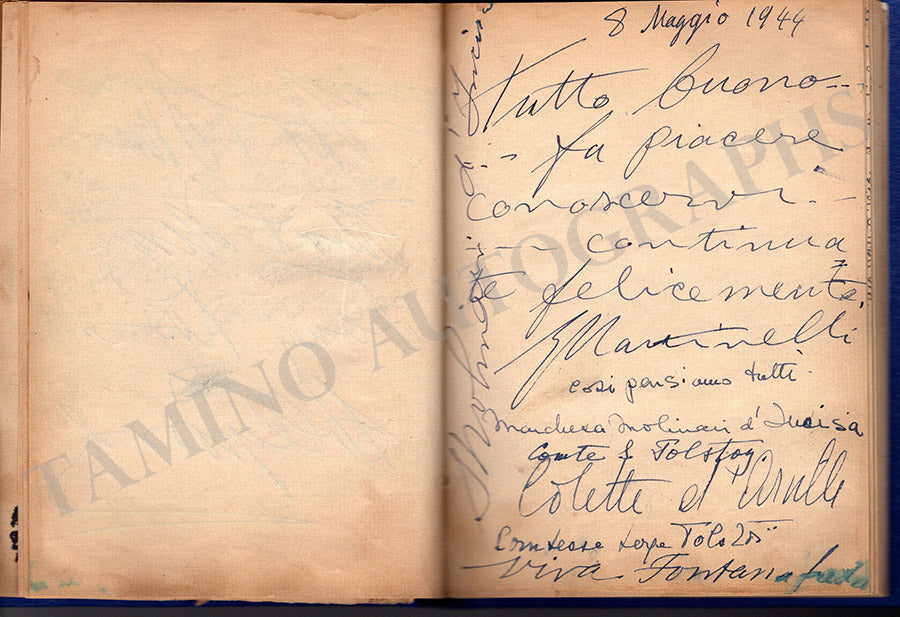 8 Maggio 1944
Tutto buono -
- fa piacere
conoscervi. -
- continua
te felicemente
G Martinelli
cosi pensiamo tutti.
Marchesa Molinari d'Incisa
Comte S Tolstoy
Colette d'Arville
Comtesse Tolstoï
Viva Fontana freda
Molinari d'Incisa
TAMINO AUTOGRAPHS